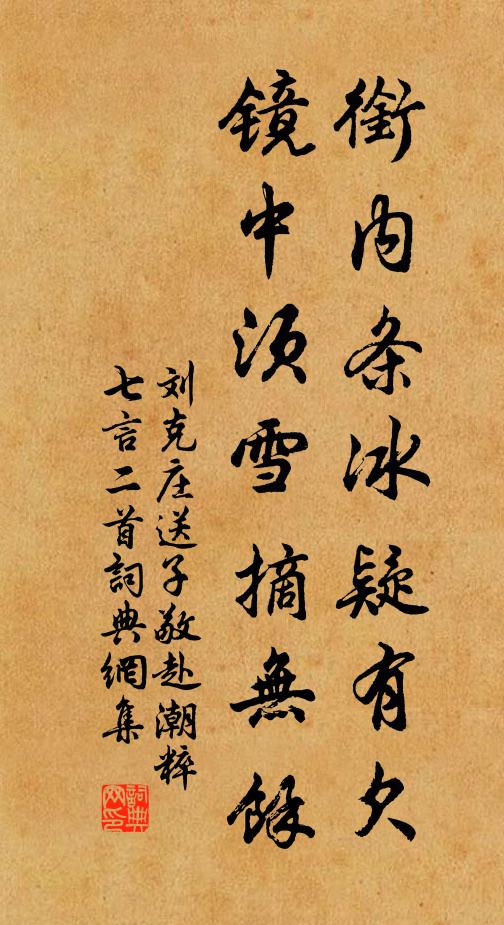 銜内条冰疑有欠
镜中须雪摘無餘
刘克庄送子敬赴潮粹
七言二首詞典網集
詞典网印